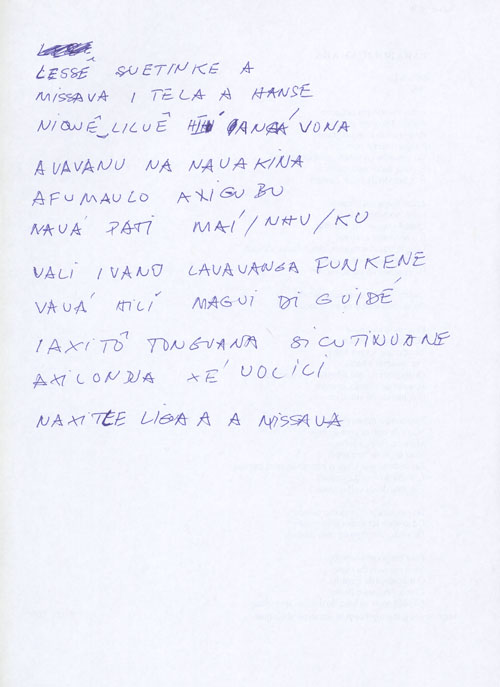 LESSÊ SUETINKE A
MISSAVA I TELA A HANSE
NIQUÊ LILUÊ VONA
AVAVANU NA NAUAKINA
AFUMAULO AXIGUBU
NAUÁ PATI MAÍ/NHU/KU
VALI IVANO LAVAVANGA FUNKENE
VAUÁ HILÍ MAGUI DI GUIDÉ
IAXITÔ TONGUANA SICUTINUANE
AXILONDNA XÉ UOLICI
NAXITLE LIGA A A MISSAVA